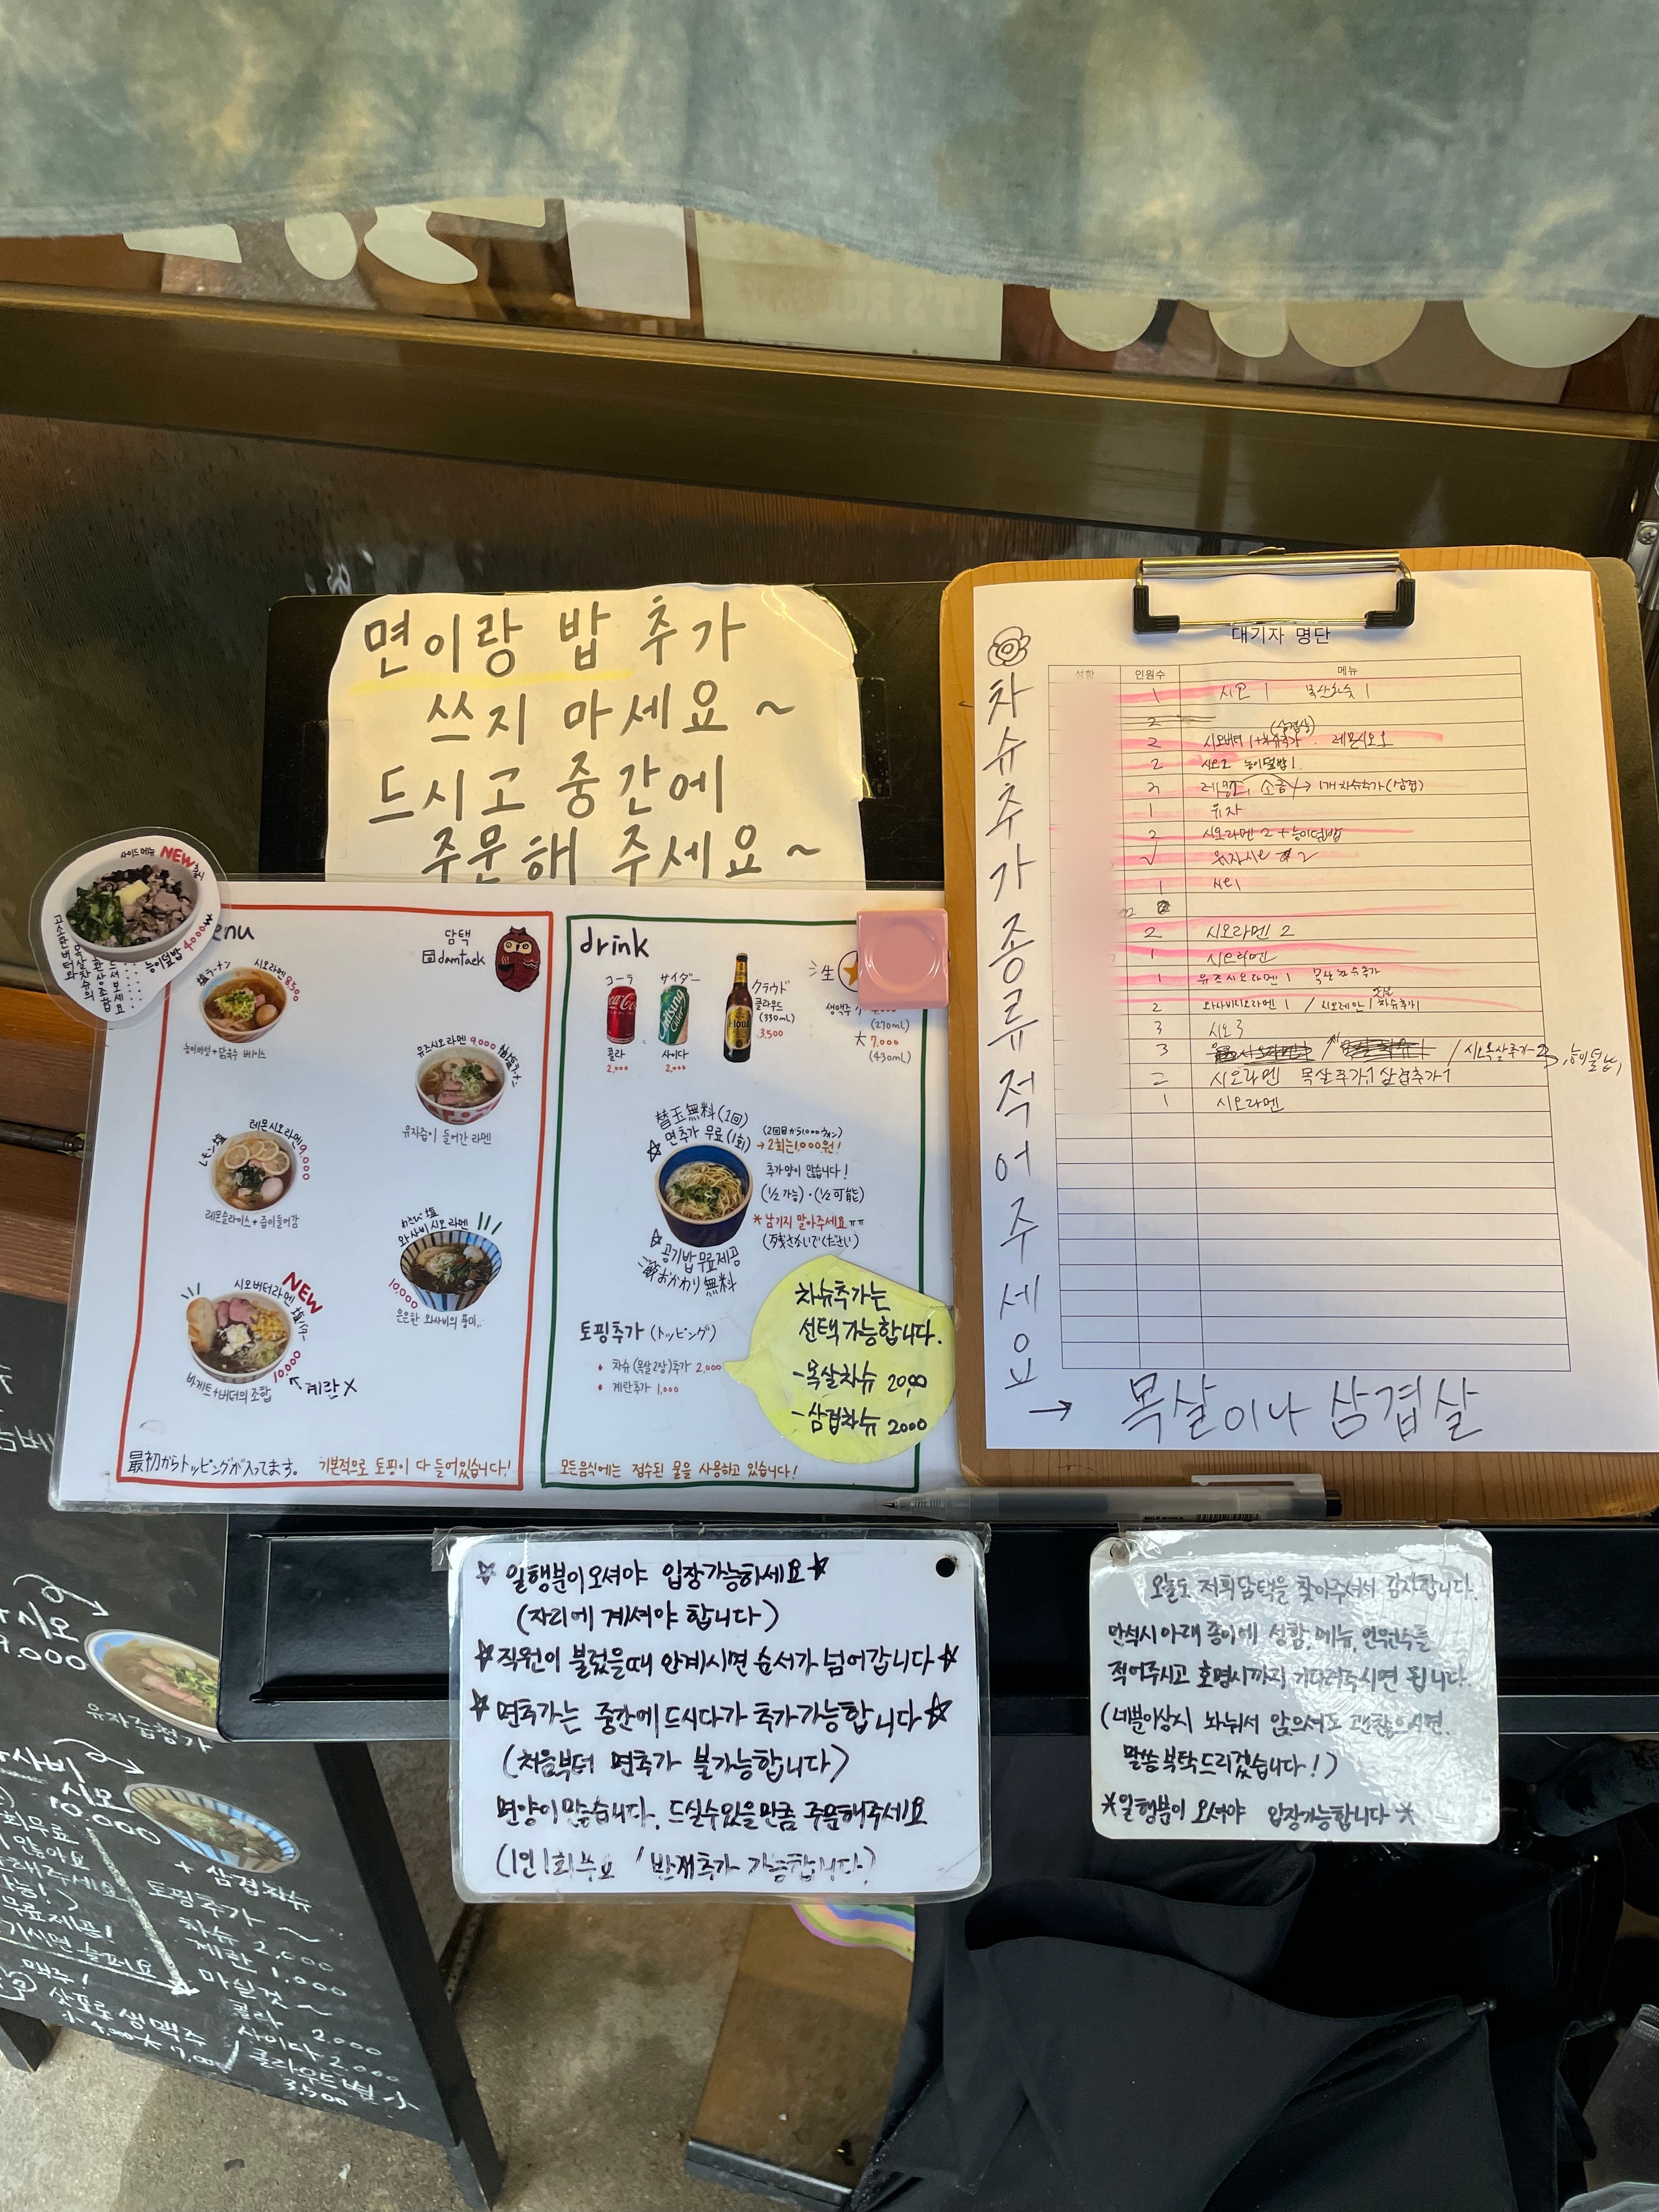 면이랑 밥 추가
쓰지 마세요 ~
드시고 중간에
주문해 주세요 ~
NEW
능이덮밥 4,000
menu
담택
damtaek
塩ラーメン
시오라멘 8,500
능이버섯 + 닭육수 베이스
유즈시오라멘 9,000
유자즙이 들어간 라멘
レモン塩
레몬시오라멘 9,000
레몬슬라이스 + 즙이들어감
わさび塩
와사비 시오라멘
10,000
은은한 와사비의 풍미..
NEW
시오버터라멘
10,000
바게트+버터의 조합
계란 X
最初からトッピングが入ってます。
기본적으로 토핑이 다 들어있습니다!
drink
コーラ
콜라
2,000
サイダー
사이다
2,000
クラウド
클라우드
(330mL)
3,500
生
생맥주
(270mL)
大 7,000
(430mL)
替玉無料 (1回)
면추가 무료 (1회)
→ 2회는 1,000원!
추가양이 많습니다!
(1/2 가능)・(1/2 可能)
* 남기지 말아주세요 ㅠㅠ
공기밥 무료제공
おかわり 無料
토핑추가 (トッピング)
• 차슈 (목살2장)추가 2,000
• 계란추가 1,000
차슈추가는
선택가능합니다.
-목살차슈 2000
-삼겹차슈 2000
모든음식에는 정수된 물을 사용하고 있습니다!
차슈추가종류적어주세요
→ 목살이나 삼겹살
대기자 명단
성함 인원수 메뉴
1 시오 1 목살차슈 1
2
(삼겹살)
2 시오버터 1+차슈추가 레몬시오1
2 시오2 능이덮밥1
1개 차슈추가(삼겹)
1 유자
2 시오라멘 2 + 능이덮밥
유자시오 2
1 시오1
2 시오라멘 2
1 시오라멘
1 유즈시오라멘 1 목살차슈추가
2 와사비시오라멘 1 / 시오라멘 1 차슈추가1
3 시오 3
3
2 시오라멘 목살추가1 삼겹추가1
1 시오라멘
☆ 일행분이오셔야 입장가능하세요 ☆
(자리에 계셔야 합니다)
☆ 직원이 불렀을때 안계시면 순서가 넘어갑니다 ☆
☆ 면추가는 중간에 드시다가 추가가능합니다 ☆
(처음부터 면추가 불가능합니다)
면양이많습니다. 드실수있을만큼 주문해주세요
(1인 1회무료 / 반개추가 가능합니다)
오늘도 저희담택을 찾아주셔서 감사합니다.
만석시 아래 종이에 성함, 메뉴, 인원수를
적어주시고 호명시까지 기다려주시면 됩니다.
(네분이상시 나눠서 앉으셔도 괜찮으시면
말씀부탁드리겠습니다!)
*일행분이 오셔야 입장가능합니다 *
시오
9,000
유자겁청가
시오
10,000
+ 삼겹차슈
토핑추가 ~
차슈 2,000
계란 1,000
마실것 ~
콜라 2,000
사이다 2,000
클라우드병 小
3,500
삿포로 생맥주